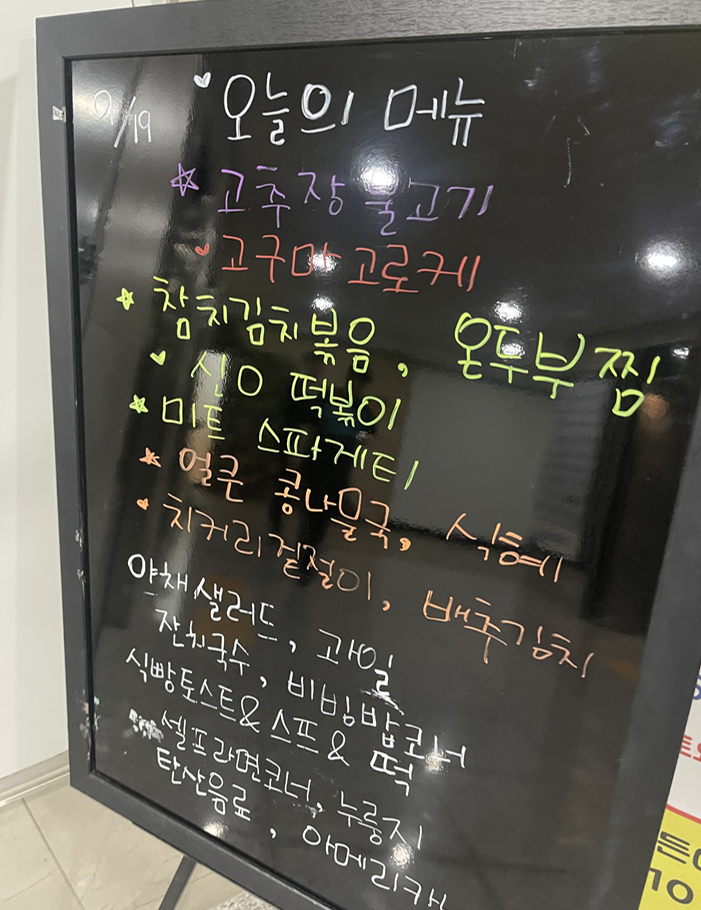 9/19 오늘의 메뉴
고추장 불고기
고구마 고로케
참치김치볶음, 온두부 찜
신 떡볶이
미트 스파게티
얼큰 콩나물국, 식혜
치커리겉절이, 배추김치
야채샐러드, 과일
잔치국수, 비빔밥코너
식빵토스트&스프& 떡
셀프라면코너, 누룽지
탄산음료, 아메리카